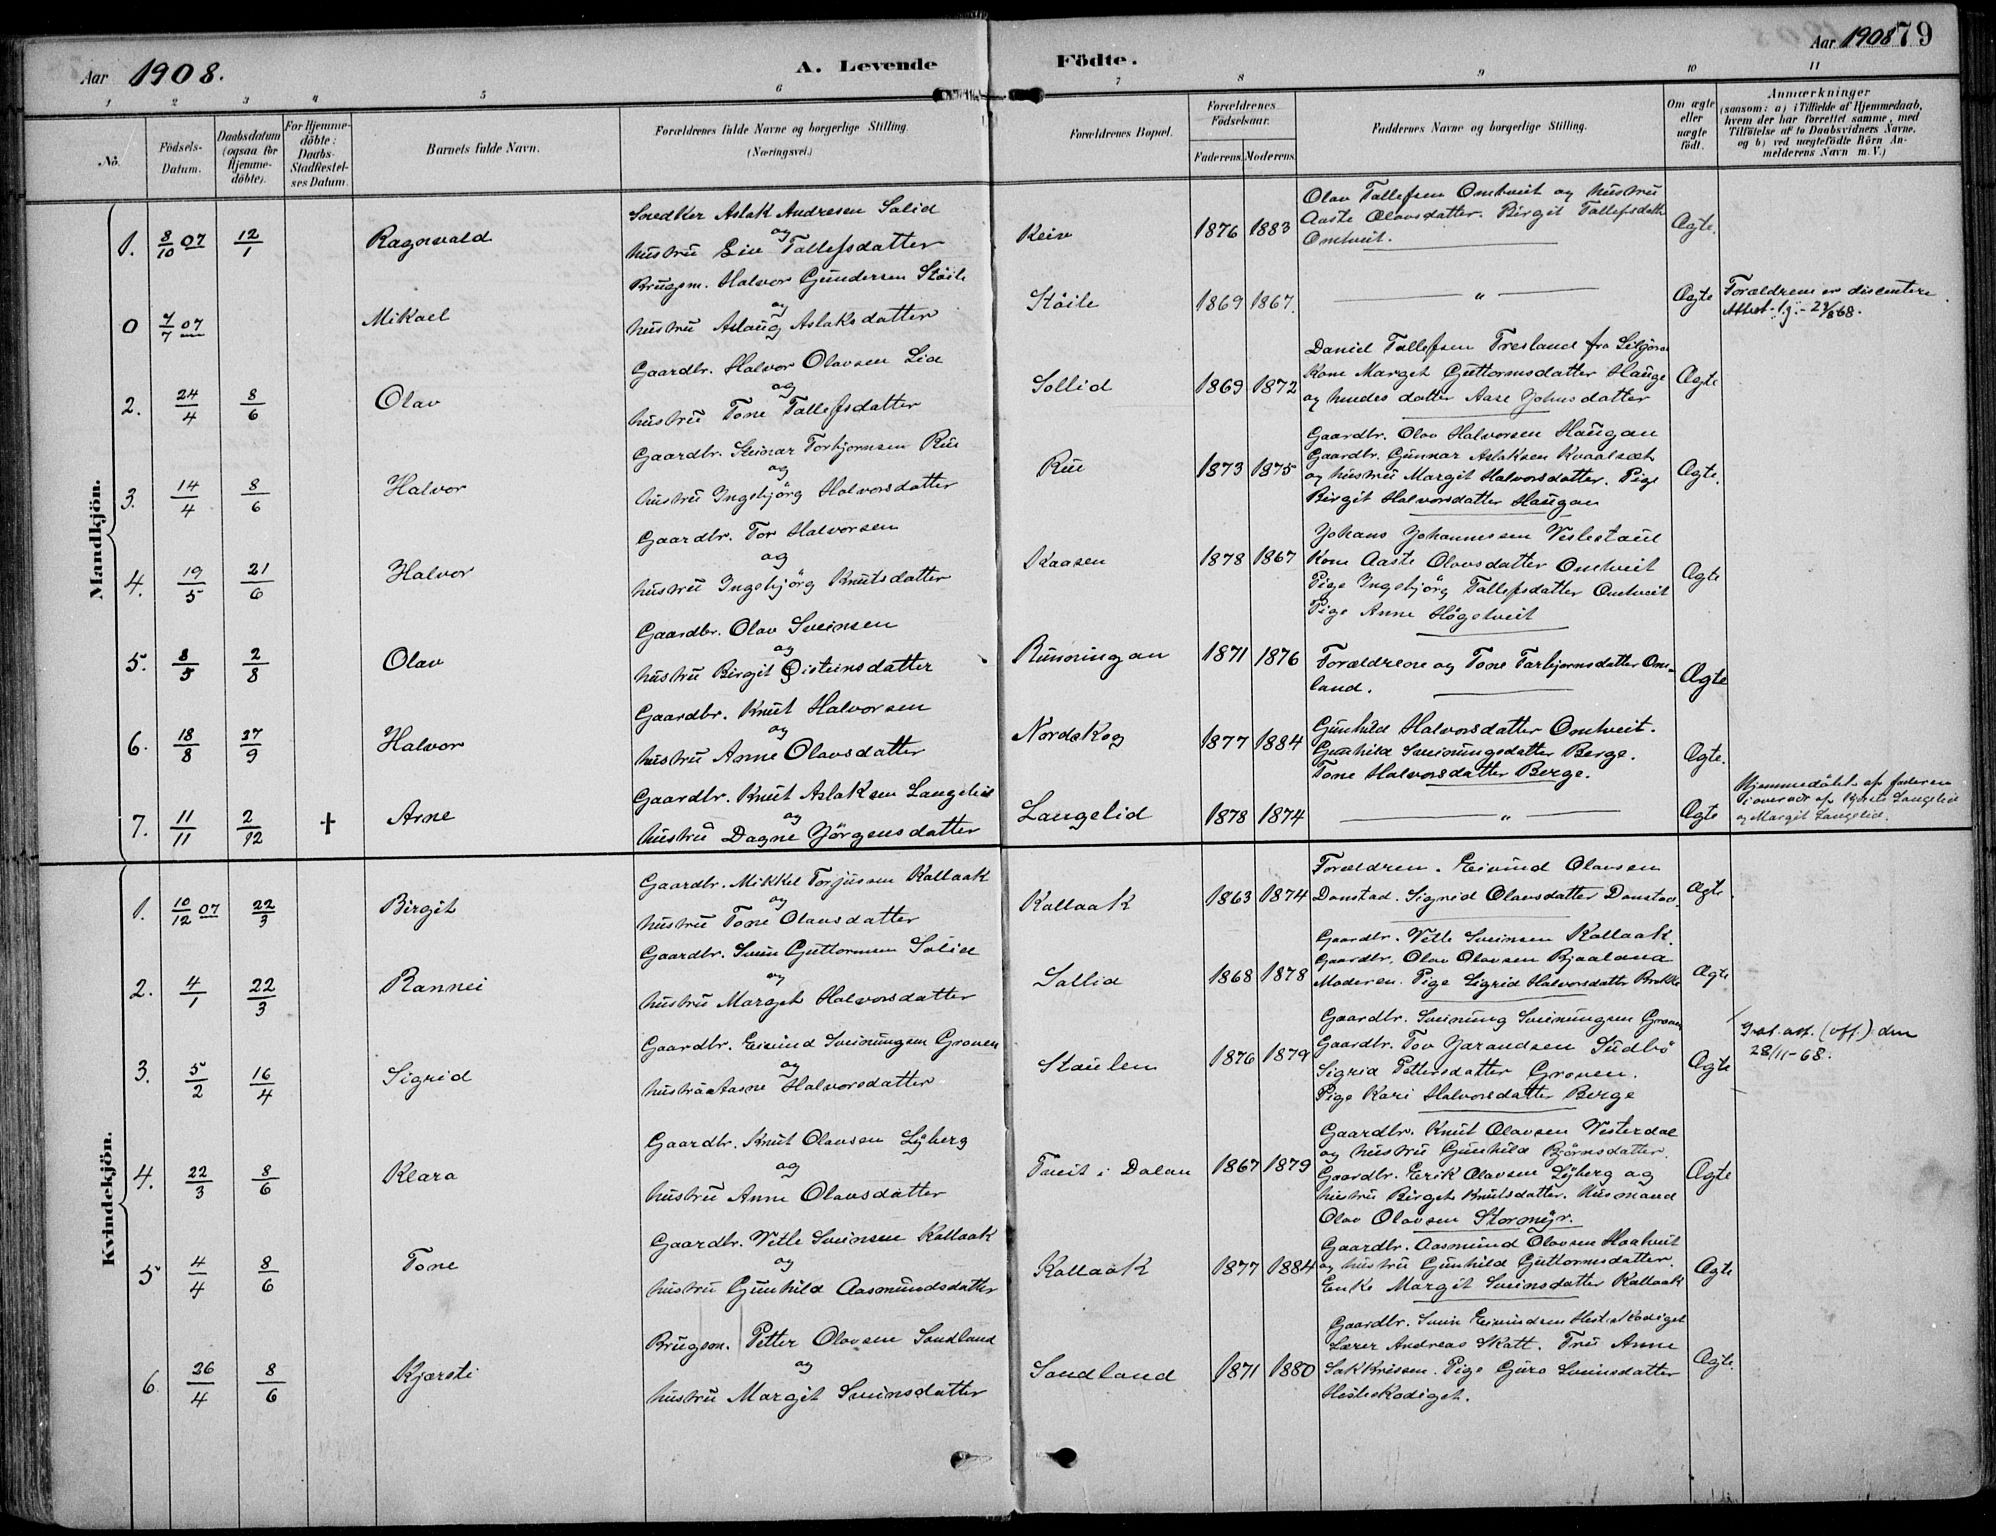 Aar 1908.
A. Levende Födte.
Aar 1908 79
1 2 3 4 5 6 7 8 9 10 11
No.
Födsels-Datum.
Daabsdatum (ogsaa for Hjemme-döbte).
For Hjemme-döbte: Daabs-Stadfæstel-ses Datum.
Barnets fulde Navn.
Forældrenes fulde Navne og borgerlige Stilling. (Næringsvei.)
Forældrenes Bopæl.
Forældrenes Födselsaar.
Faderens. Moderens.
Faddernes Navne og borgerlige Stilling.
Om ægte eller uægte födt.
Anmærkninger
(saasom: a) i Tilfælde af Hjemmedaab,
hvem der har forrettet samme, med
Tilföielse af to Daabsvidners Navne,
og b) ved uægtefödte Börn An-
melderens Navn m. V.)
Mandkjön.
1. 8/10 07 12/1 Ragnvald
Snedker Aslak Andresen Solid
og
hustru Liv Tallefsdatter
Keiv 1876 1883
Olav Tallefsen Omtveit og hustru
Aaste Olavsdatter. Birgit Tallefsdatter
Omtveit.
Ægte.
0 7/7 07 Mikael
Brugsm. Halvor Gundersen Støile
og
hustru Aslaug Aslaksdatter
Støile 1869 1867.
"
Ægte
Forældrene er dissentere.
Attest 29/8 68.
2. 24/4 8/6 Olav
Gaardbr. Halvor Olavsen Lid
og
hustru Tone Tallefsdatter
Sollid 1869 1872
Daniel Tallefsen Tresland fra Siljord
Kone Marget Guttormsdatter Hauge
og hendes datter Aase Johnsdatter
Ægte
3. 14/4 8/6 Halvor
Gaardbr. Steinar Torbjørnsen Rue
og
hustru Ingebjörg Halvorsdatter
Rue 1873 1875
Gaardbr. Olav Halvorsen Haugan
Gaardbr. Gunnar Aslaksen Kvaalsæt
og hustru Margit Halvorsdatter. Pige
Birgit Halvorsdatter Haugan
Ægte.
4. 19/5 21/6 Halvor
Gaardbr. Tor Halvorsen
og
hustru Ingebjörg Knutsdatter
Kaasen 1878 1867
Johans Johannessen Veslestaul
Kone Aaste Olavsdatter Omtveit
Pige Ingebjörg Tallefsdatter Omtveit
Pige Anne Høgetveit
Ægte
5. 8/5 2/8 Olav
Gaardbr. Olav Sveinsen
og
hustru Birgit Øisteinsdatter
Runningan 1871 1876
Forældrene og Tone Tarbjørnsdatter Om-
land.
Ægte
6. 18/8 27/9 Halvor
Gaardbr. Knut Halvorsen
og
hustru Anne Olavsdatter
Nordskog 1877 1884
Gunhild Halvorsdatter Omtveit.
Gunhild Sveinungsdatter Berge.
Tone Halvorsdatter Berge.
Ægte.
7. 11/11 2/12 † Arne
Gaardbr. Knut Aslaksen Langelid
og
hustru Dagne Jörgensdatter
Langelid 1878 1874
"
Ægte
Hjemmedöbt af faderen
i overvær af Kjersti Langelid
og Margit Langelid.
Kvindekjön.
1. 10/12 07 22/3 Birgit
Gaardbr. Mikkel Torjussen Kallaak
og
hustru Tone Olavsdatter
Kallaak 1863 1874
Forældren. Eivind Olavsen
Donstad. Sigrid Olavsdatter Donstad.
Ægte
2. 4/1 22/3 Rannei
Gaardbr. Svein Guttormsen Solid
og
hustru Marget Halvorsdatter
Sollid 1868 1878
Gaardbr. Vetle Sveinsen Kallaak.
Gaardbr. Olav Olavsen Bjaaland
Moderen. Pige Sigrid Halvorsdatter Brekke
Ægte
3. 5/2 16/4 Sigrid
Gaardbr. Eivind Sveinungsen Groven
og
hustru Aasne Halvorsdatter
Staulen 1876 1879
Gaardbr. Sveinung Sveinungsen Groven
Gaardbr. Tov Jarandsen Sudbö
Sigrid Pettersdatter Groven.
Pige Kari Halvorsdatter Berge
Ægte
att. (off.) den
28/11-68.
4. 22/3 8/6 Klara
Gaardbr. Knut Olavsen Lyberg
og
hustru Anne Olavsdatter
Tveit i Dalen 1867 1879
Gaardbr. Knut Olavsen Vesterdal
og hustru Gunhild Bjørnsdatter.
Gaardbr. Erik Olavsen Lyberg og
hustru Birget Knutsdatter. Husmand
Olav Olavsen Stormyr.
Ægte
5 4/4 8/6 Tone
Gaardbr. Vetle Sveinsen Kallaak
og
hustru Gunhild Aasmundsdatter
Kallaak 1877 1884
Gaardbr. Aasmund Olavsen Haatveit
og hustru Gunhild Guttormsdatter.
Enke Margit Sveinsdatter Kallaak
Ægte
6 26/4 8/6 Kjærsti
Brugsm. Petter Olavsen Sandland
og
hustru Margit Sveinsdatter
Sandland 1871 1880
Gaardbr. Svein Eivindsen Hesteskodiget
Lærer Andreas Skatt. Fru Anne
Pige Guro Sveinsdatter
Hesteskodiget.
Ægte.